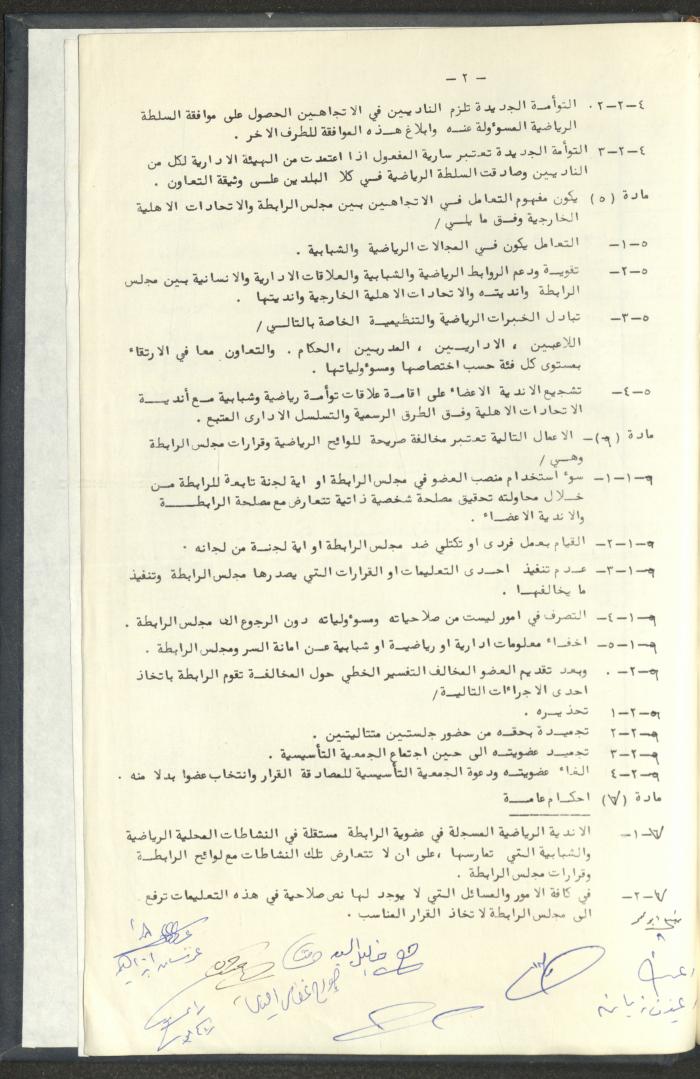 - ٢ -
٤-٢-٢. التوأمة الجديدة تلزم الناديين في الاتجاهين الحصول على موافقة السلطة
الرياضية المسؤولة عنه وابلاغ هذه الموافقة للطرف الاخر .
٤-٢-٣ التوأمة الجديدة تعتبر سارية المفعول اذا اعتمدت من الهيئة الادارية لكل من
الناديين وصادقت السلطة الرياضية في كلا البلدين على وثيقة التعاون .
مادة (٥) يكون مفهوم التعامل في الاتجاهين بين مجلس الرابطة والاتحادات الاهلية
الخارجية وفق ما يلي /
٥-١- التعامل يكون في المجالات الرياضية والشبابية .
٥-٢- تقوية ودعم الروابط الرياضية والشبابية والعلاقات الادارية والانسانية بين مجلس
الرابطة وانديته والاتحادات الاهلية الخارجية وانديتها .
٥-٣- تبادل الخبرات الرياضية والتنظيمية الخاصة بالتالي /
اللاعبين ، الاداريين ، المدربين ،الحكام . والتعاون معا في الارتقاء
بمستوى كل فئة حسب اختصاصها ومسؤولياتها .
٥-٤- تشجيع الاندية الاعضاء على اقامة علاقات توأمة رياضية وشبابية مع أندية
الاتحادات الاهلية وفق الطرق الرسمية والتسلسل الادارى المتبع .
مادة (٦)- الاعمال التالية تعتبر مخالفة صريحة للوائح الرياضية وقرارات مجلس الرابطة
وهي /
٦-١-١- سوء استخدام منصب العضو في مجلس الرابطة او اية لجنة تابعة للرابطة من
خلال محاولته تحقيق مصلحة شخصية ذاتية تتعارض مع مصلحة الرابطة
والاندية الاعضاء .
٦-١-٢- القيام بعمل فردى او تكتلي ضد مجلس الرابطة او اية لجنة من لجانه .
٦-١-٣- عدم تنفيذ احدى التعليمات او القرارات التي يصدرها مجلس الرابطة وتنفيذ
ما يخالفها .
٦-١-٤- التصرف في امور ليست من صلاحياته ومسوءولياته دون الرجوع الى مجلس الرابطة .
٦-١-٥- اخفاء معلومات ادارية او رياضية او شبابية عن امانة السر ومجلس الرابطة .
٦-٢-. وبعد تقديم العضو المخالف التفسير الخطي حول المخالفة تقوم الرابطة باتخاذ
احدى الاجراءات التالية/
٦-٢-١ تحذيره .
٦-٢-٢ تجميدة بحقه من حضور جلستين متتاليتين .
٦-٢-٣ تجميد عضويته الى حين اجتماع الجمعية التأسيسية .
٦-٢-٤ الغاء عضويته ودعوة الجمعية التأسيسية للمصادقة القرار وانتخاب عضوا بدلا منه .
مادة (٧) احكام عامة
٧-١- الاندية الرياضية المسجلة في عضوية الرابطة مستقلة في النشاطات المحلية الرياضية
والشبابية التي تمارسها ،على ان لا تتعارض تلك النشاطات مع لوائح الرابطة
وقرارات مجلس الرابطة .
٧-٢- في كافة الامور والمسائل التي لا يوجد لها نص صلاحية في هذه التعليمات ترفع
الى مجلس الرابطة لاتخاذ القرار المناسب .